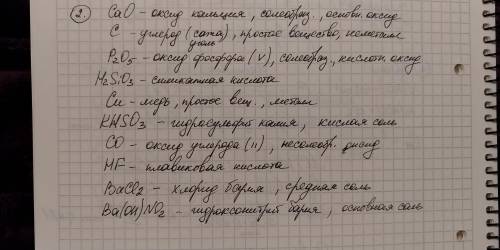 2. CaO - оксид кальция, солеобраз., основн. оксид
C - углерод (сажа), простое вещество, неметалл
уголь
P2O5 - оксид фосфора (V), солеобраз., кислотн. оксид
H2SiO3 - силикатная кислота
Cu - медь, простое вещ., металл
KHSO3 - гидросульфит калия, кислая соль
CO - оксид углерода (II), несолеобр. оксид
HF - плавиковая кислота
BaCl2 - хлорид бария, средняя соль
Ba(OH)NO2 - гидроксонитрит бария, основная соль